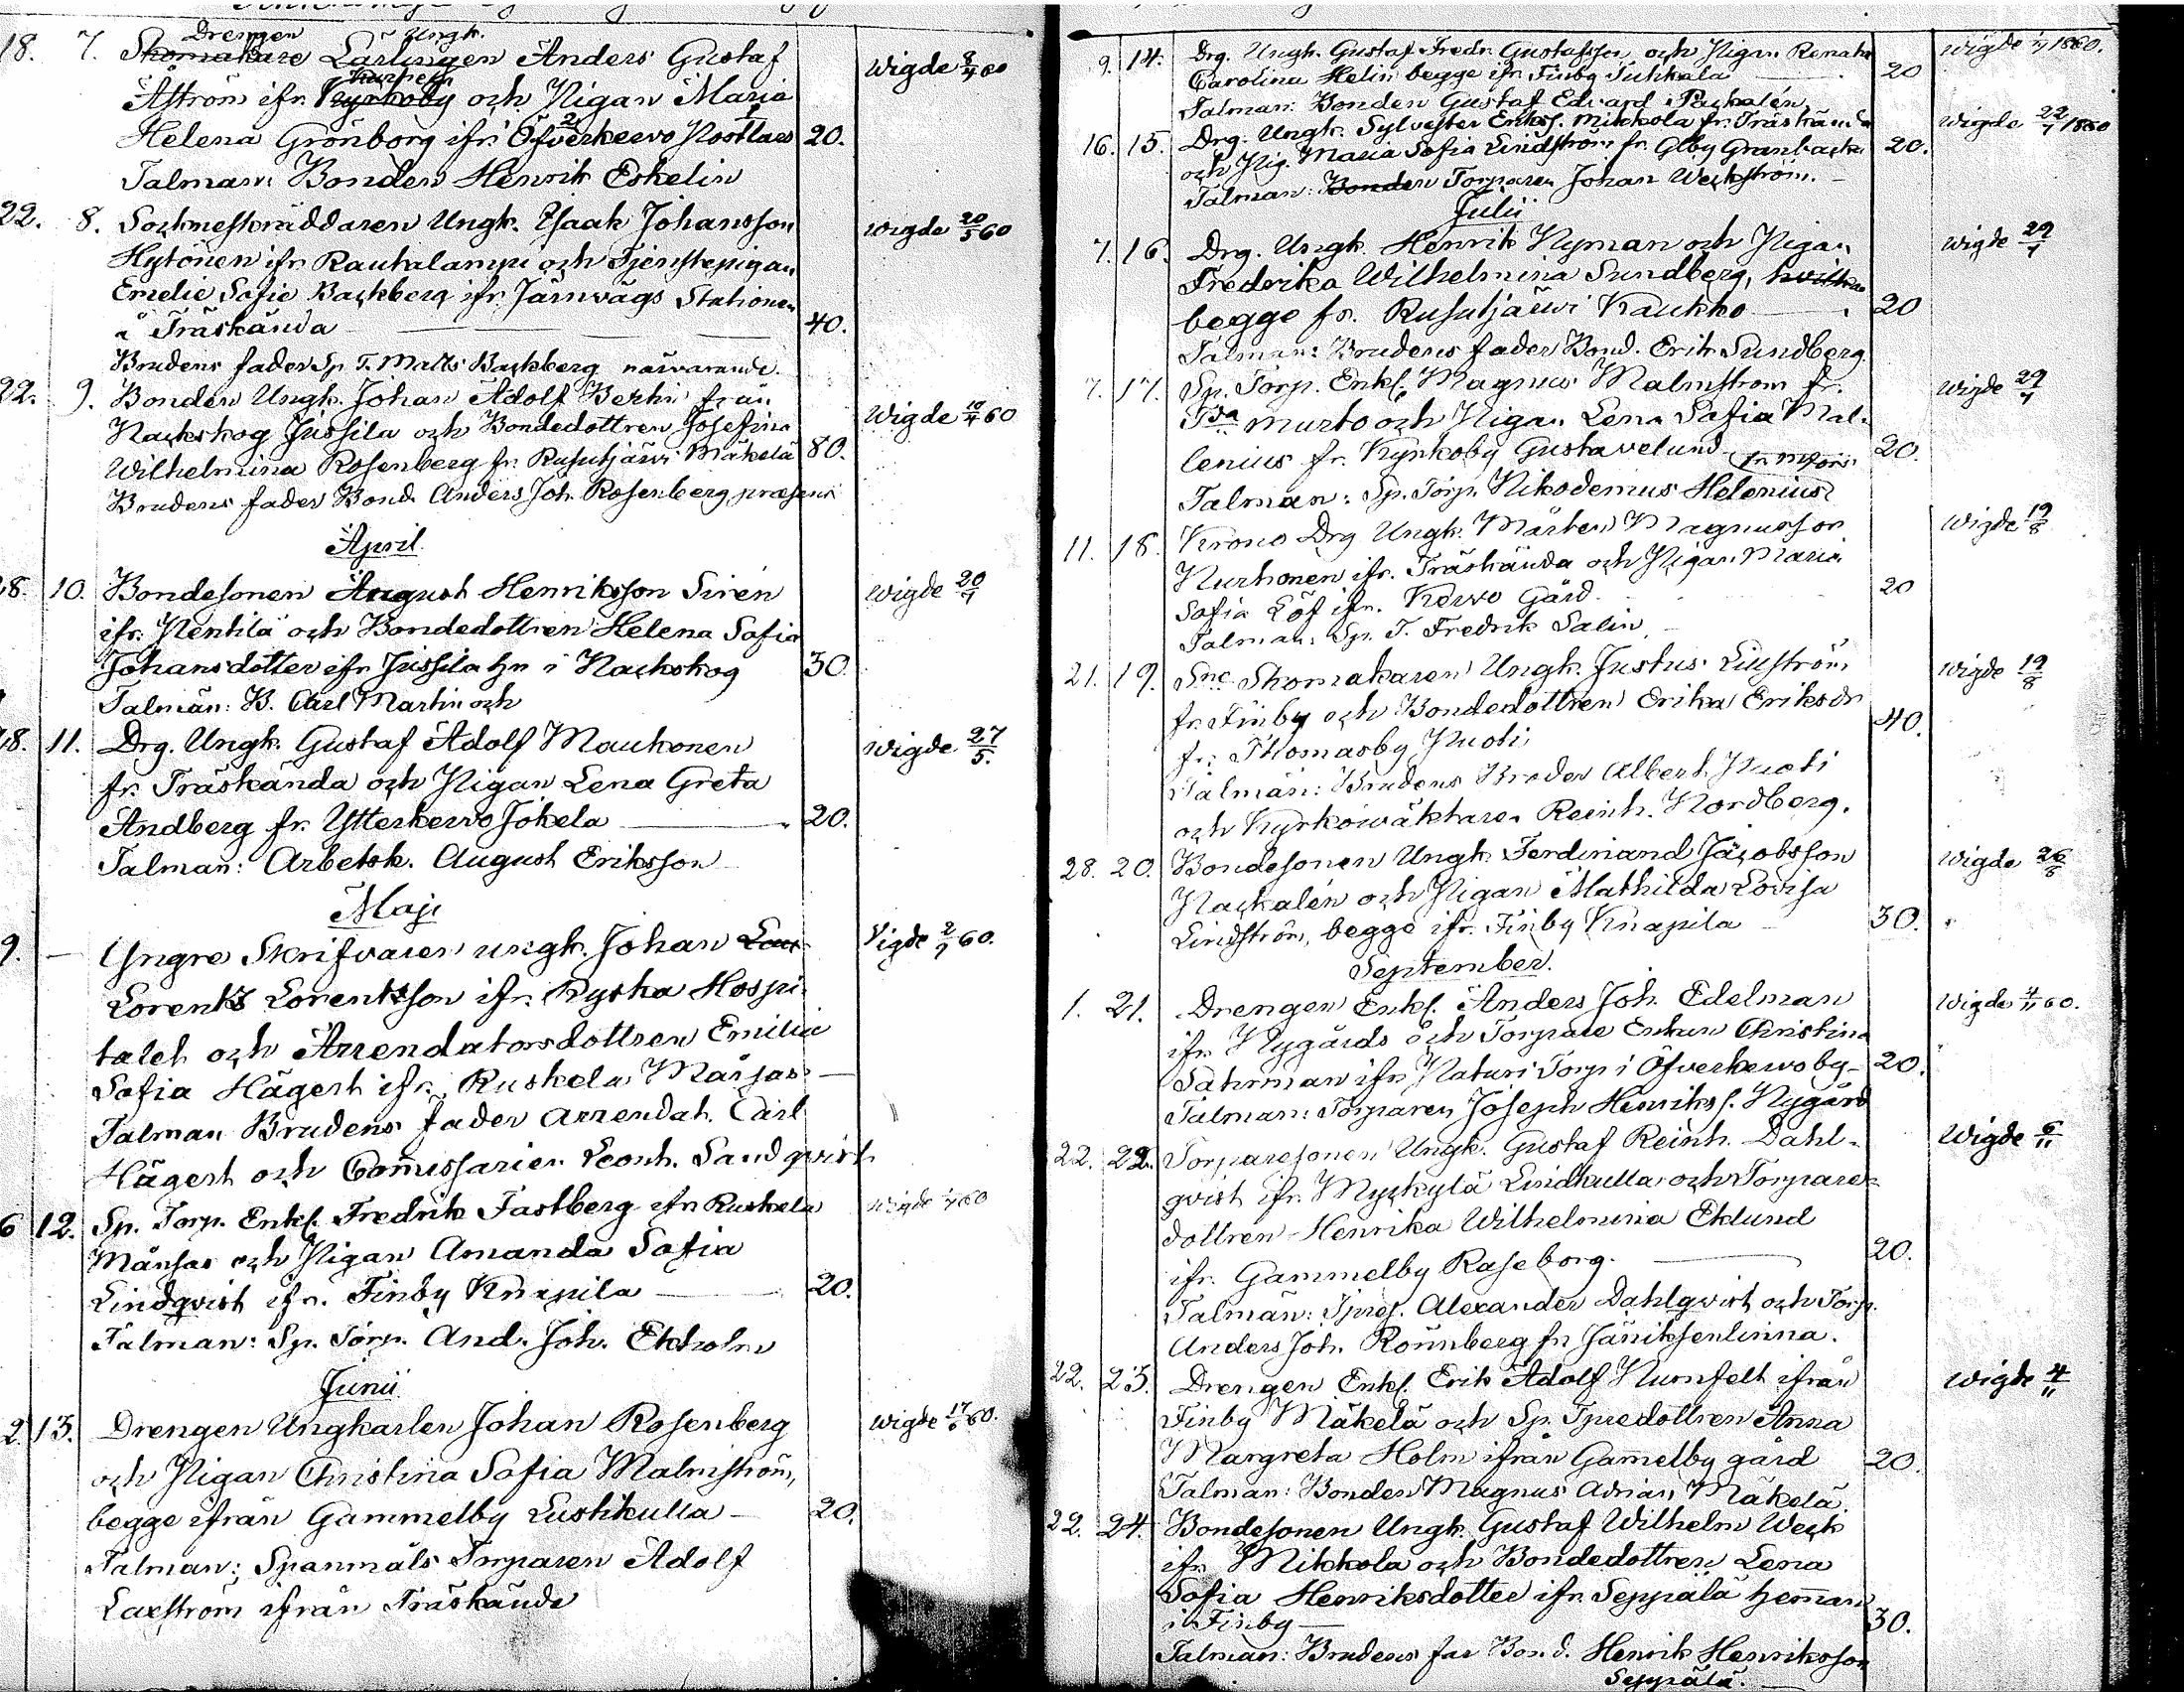 Drengen Ungk.
18. 7. Skomakare Lärlingen Anders Gustaf Wigde 9/4 60
Åström ifr. Kyrkoby och Pigan Maria
Helena Grönborg ifr. Öfverkervo Postlars 20.
Talman: Bonden Henrik Eskelin
22. 8. Sockneskräddaren Ungk. Isaak Johansson Wigde 20/5 60
Hytönen ifr. Rautalampi och Tjenstepigan
Emelie Sofie Backberg ifr. Järnvägs Stationen
å Träskända 40.
Brudens fader Sp. T. Matts Backberg närvarande.
22. 9. Bonden Ungk. Johan Adolf Berlin från Wigde 10/4 60
Nackskog Jussila och Bondedottren Josefina
Wilhelmina Rosenberg fr. Rusutjärvi Mäkelä 80.
Brudens fader Bond. Anders Joh. Rosenberg præsens
April.
18. 10. Bondesonen August Henriksson Sirén Wigde
ifr. Pentilä och Bondedottren Helena Sofia
Johansdotter ifr. Jussila hn i Nackskog 30.
Talmän: B. Carl Martin och
18. 11. Drg. Ungk. Gustaf Adolf Maukonen Wigde 27/5.
fr. Träskända och Pigan Lena Greta
Andberg fr. Ytterkervo Jokela 20.
Talman: Arbetsk. August Eriksson
Maji
9. — Yngre Skrifvaren ungk. Johan Vigde 60.
Lorents Lorentsson ifr. Ryska Hospi-
talet och Arrendatorsdottren Emilia
Sofia Hägert ifr. Ruskela Månsas —
Talman Brudens fader Arrendat. Carl
Hägert och Comissarien Leonh. Sandqvist.
6 12. Sp. Torp. Enkl. Fredrik Fastberg ifr. Ruskela Wigde 60
Månsas och Pigan Amanda Sofia
Lindqvist ifr. Finby Knapila 20.
Talman: Sp. Torp. And. Joh. Ekholm
Junii
2. 13. Drengen Ungkarlen Johan Rosenberg Wigde 17/6 60.
och Pigan Christina Sofia Malmström,
begge ifrån Gammelby Lustikulla — 20.
Talman: Spanmåls Torparen Adolf
Laxström ifrån Träskända
9. 14. Drg. Ungk. Gustaf Fredr. Gustafsson och Pigan Renata Wigde 1860.
Carolina Helin begge ifr. Finby Tuhkala 20
Talman: Bonden Gustaf Edvard Packalén
16. 15. Drg. Ungk. Sylvester Erikss. Mikkola fr. Träskända Wigde 22/7 1860
och Pig. Maria Sofia Lindström fr. Glby Granbacka 20.
Talman: Bonden Torparen Johan Weckström. —
Julii
7. 16. Drg. Ungk. Henrik Nyman och Pigan Wigde 29/7
Fredrika Wilhelmina Sundberg, hvilka
begge fr. Rusutjärvi Kaukko 20
Talman: Brudens fader Bond. Erik Sundberg.
7. 17. Sp. Torp. Enkl. Magnus Malmström fr. Wigde 29/7
murto och Pigan Lena Sofia Mal-
lenius fr. Kyrkoby Gustavelund 20.
Talman: Sp. Torp. Nikodemus Helenius
11. 18. Krono Drg Ungk. Mårten Magnusson Wigde 19/8
Nurhonen ifr. Träskända och Pigan Maria
Sofia Löf ifr. Kervo Gård. 20
Talman: Sp. T. Fredrik Salin
21. 19. Sne Skomakaren Ungk. Justus Liljström Wigde 19/8
fr. Finby och Bondedottren Erika Eriksdr
fr. Thomasby Puoti 40.
Talmän: Brudens Broder Albert Puoti
och Kyrkowäktaren Reinh. Nordberg.
28. 20. Bondesonen Ungk. Ferdinand Jacobsson Wigde 26/8
Packalén och Pigan Mathilda Lovisa
Lindström, begge ifr. Finby Knapila 30.
September.
1. 21. Drengen Enkl. Anders Joh. Edelman Wigde 4/11 60.
ifr. Nygårds och Torpare Enkan Christina
Sahrman ifr. Naturi Torp i Öfverkervo by — 20.
Talman: Torparen Joseph Henrikss. Nygård
22. 22. Torparesonen Ungk. Gustaf Reinh. Dahl- Wigde 6/11
qvist ifr. Myckylä Lindkulla och Torpare-
dottren Henrika Wilhelmina Eklund
ifr. Gammelby Raseborg. 20.
Talmän: Alexander Dahlqvist och Torp.
Anders Joh. Rönnberg fr. Jäniksenlinna.
22. 23. Drengen Enkl. Erik Adolf Numfelt ifrån Wigde 4/11
Finby Mäkelä och Sp. Tpredottren Anna
Margreta Holm ifrån Gamelby gård 20.
Talman: Bonden Magnus Adrian Mäkelä.
22. 24. Bondesonen Ungk. Gustaf Wilhelm Weck
ifr. Mikkola och Bondedottren Lena
Sofia Henriksdotter ifr. Seppälä heman
i Finby — 30.
Talman: Brudens far Bond. Henrik Henriksson
Seppälä.